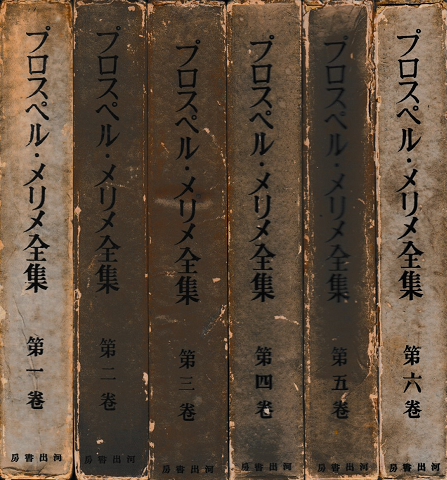 プロスペル・メリメ全集
第一卷
河出書房
プロスペル・メリメ全集
第二卷
河出書房
プロスペル・メリメ全集
第三卷
河出書房
プロスペル・メリメ全集
第四卷
河出書房
プロスペル・メリメ全集
第五卷
河出書房
プロスペル・メリメ全集
第六卷
河出書房